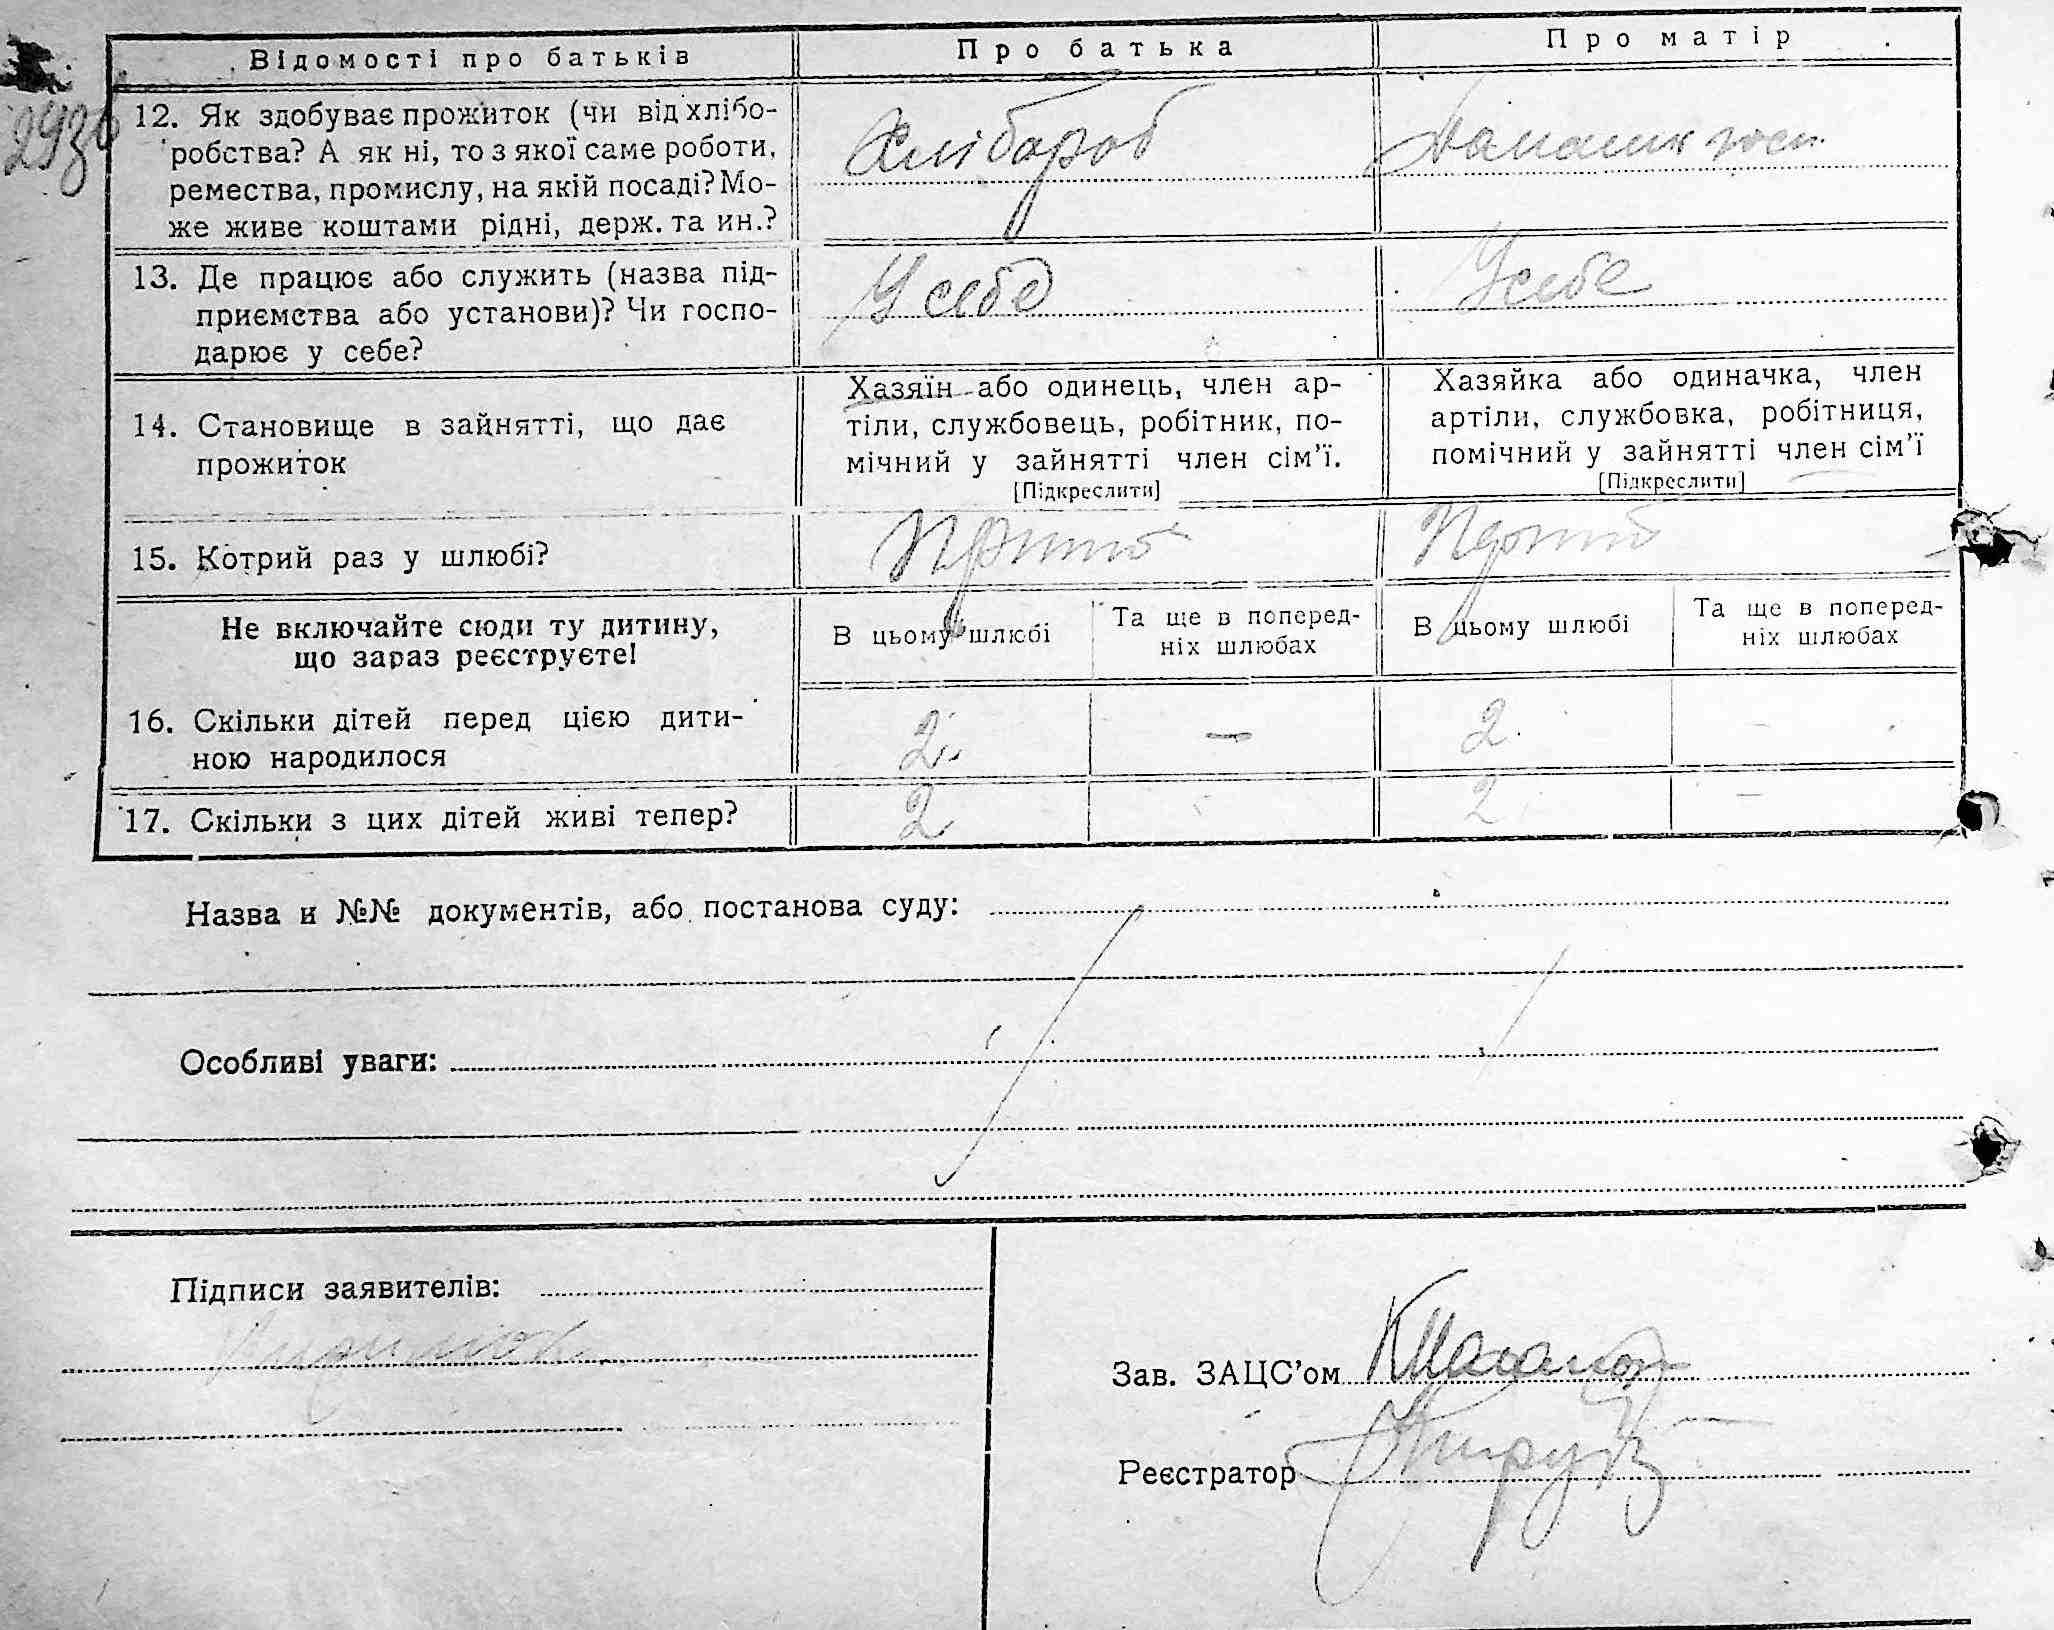 Відомості про батьків
Про батька
Про матір
293б
12. Як здобуває прожиток (чи від хлібо-
робства? А як ні, то з якої саме роботи,
ремества, промислу, на якій посаді? Мо-
же живе коштами рідні, держ. та ин.?
Хлібороб
Домашн госп.
13. Де працює або служить (назва під-
приємства або установи)? Чи госпо-
дарює у себе?
У себе
У себе
14. Становище в зайнятті, що дає
прожиток
Хазяїн або одинець, член ар-
тіли, службовець, робітник, по-
мічний у зайнятті член сім’ї.
[Підкреслити]
Хазяйка або одиначка, член
артіли, службовка, робітниця,
помічний у зайнятті член сім’ї
[Підкреслити]
15. Котрий раз у шлюбі?
Не включайте сюди ту дитину,
що зараз реєструєте!
В цьому шлюбі
Та ще в поперед-
ніх шлюбах
В цьому шлюбі
Та ще в поперед-
ніх шлюбах
16. Скільки дітей перед цією дити-
ною народилося
2.
—
2.
—
17. Скільки з цих дітей живі тепер?
2
-
2
—
Назва и №№ документів, або постанова суду:
Особливі уваги:
Підписи заявителів:
Зав. ЗАЦС’ом
Реєстратор